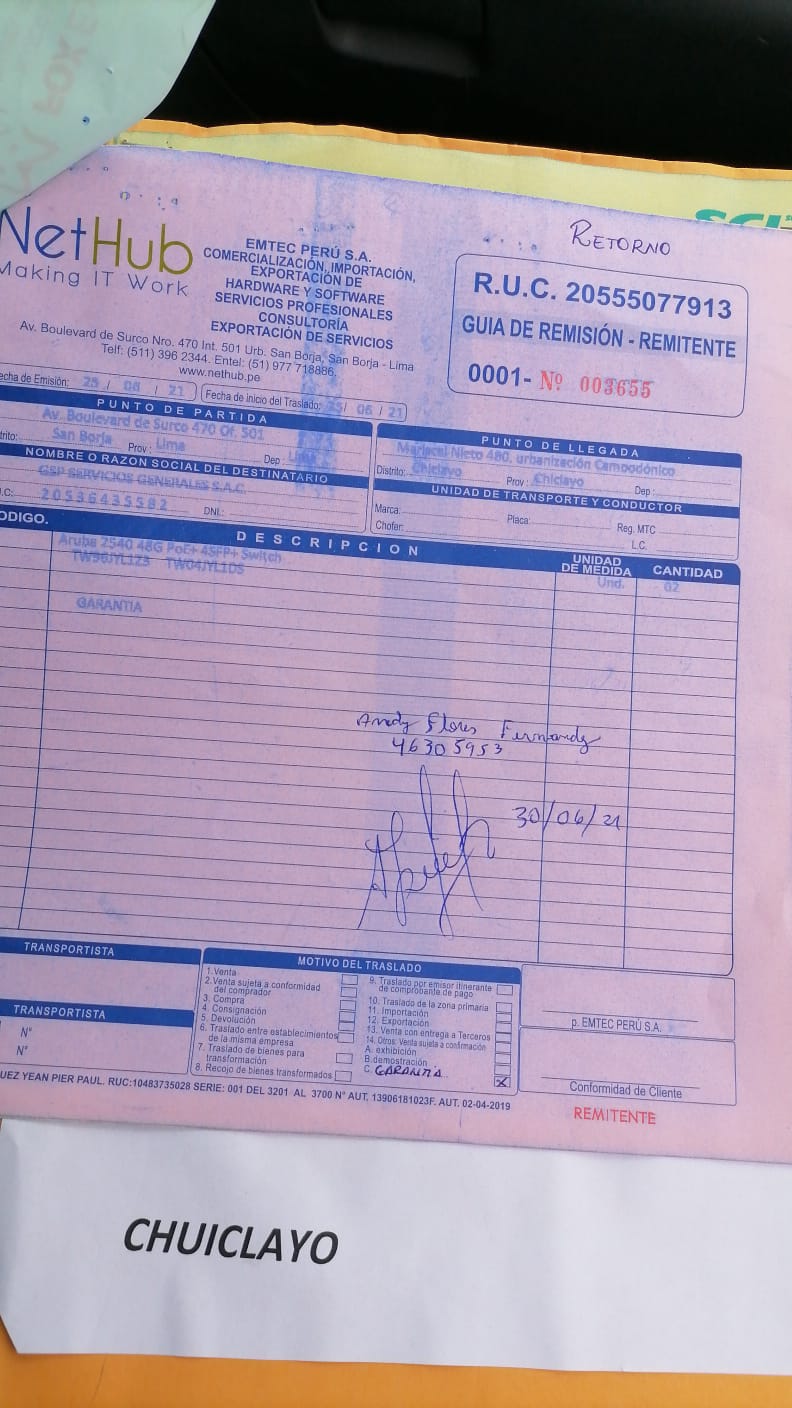 RETORNO
NetHub
Making IT Work
EMTEC PERÚ S.A.
COMERCIALIZACIÓN, IMPORTACIÓN,
EXPORTACIÓN DE
HARDWARE Y SOFTWARE
SERVICIOS PROFESIONALES
CONSULTORÍA
EXPORTACIÓN DE SERVICIOS
Av. Boulevard de Surco Nro. 470 Int. 501 Urb. San Borja, San Borja - Lima
Telf: (511) 396 2344. Entel: (51) 977 718886.
www.nethub.pe
R.U.C. 20555077913
GUIA DE REMISIÓN - REMITENTE
0001- Nº 003655
echa de Emisión: 25 / 06 / 21
Fecha de inicio del Traslado: 25/ 06 / 21
PUNTO DE PARTIDA
Av. Boulevard de Surco 470 Of. 501
trito: San Borja Prov : Lima Dep : Lima
NOMBRE O RAZON SOCIAL DEL DESTINATARIO
GSP SERVICIOS GENERALES S.A.C.
.C: 20536435582 DNI.:
PUNTO DE LLEGADA
Mariscal Nieto 480, urbanización Campodónico
Distrito: Chiclayo Prov : Chiclayo Dep :
UNIDAD DE TRANSPORTE Y CONDUCTOR
Marca: Placa: Reg. MTC
Chofer: L.C.
ODIGO. DESCRIPCION UNIDAD DE MEDIDA CANTIDAD
Aruba 2540 48G PoE+ 4SFP+ Switch Und. 02
GARANTIA
Andy Flores Fernandez
46305953
30/06/21
TRANSPORTISTA
TRANSPORTISTA
N°
N°
MOTIVO DEL TRASLADO
1.Venta
2.Venta sujeta a conformidad
del comprador
3. Compra
4. Consignación
5. Devolución
6. Traslado entre establecimientos
de la misma empresa
7. Traslado de bienes para
transformación
8. Recojo de bienes transformados
9. Traslado por emisor itinerante
de comprobante de pago
10. Traslado de la zona primaria
11. Importación
12. Exportación
13. Venta con entrega a Terceros
14. Otros: Venta sujeta a confirmación
A. exhibición
B.demostración
C. GARANTIA X
p. EMTEC PERÚ S.A.
Conformidad de Cliente
UEZ YEAN PIER PAUL. RUC:10483735028 SERIE: 001 DEL 3201 AL 3700 N° AUT. 13906181023F. AUT. 02-04-2019
REMITENTE
CHUICLAYO